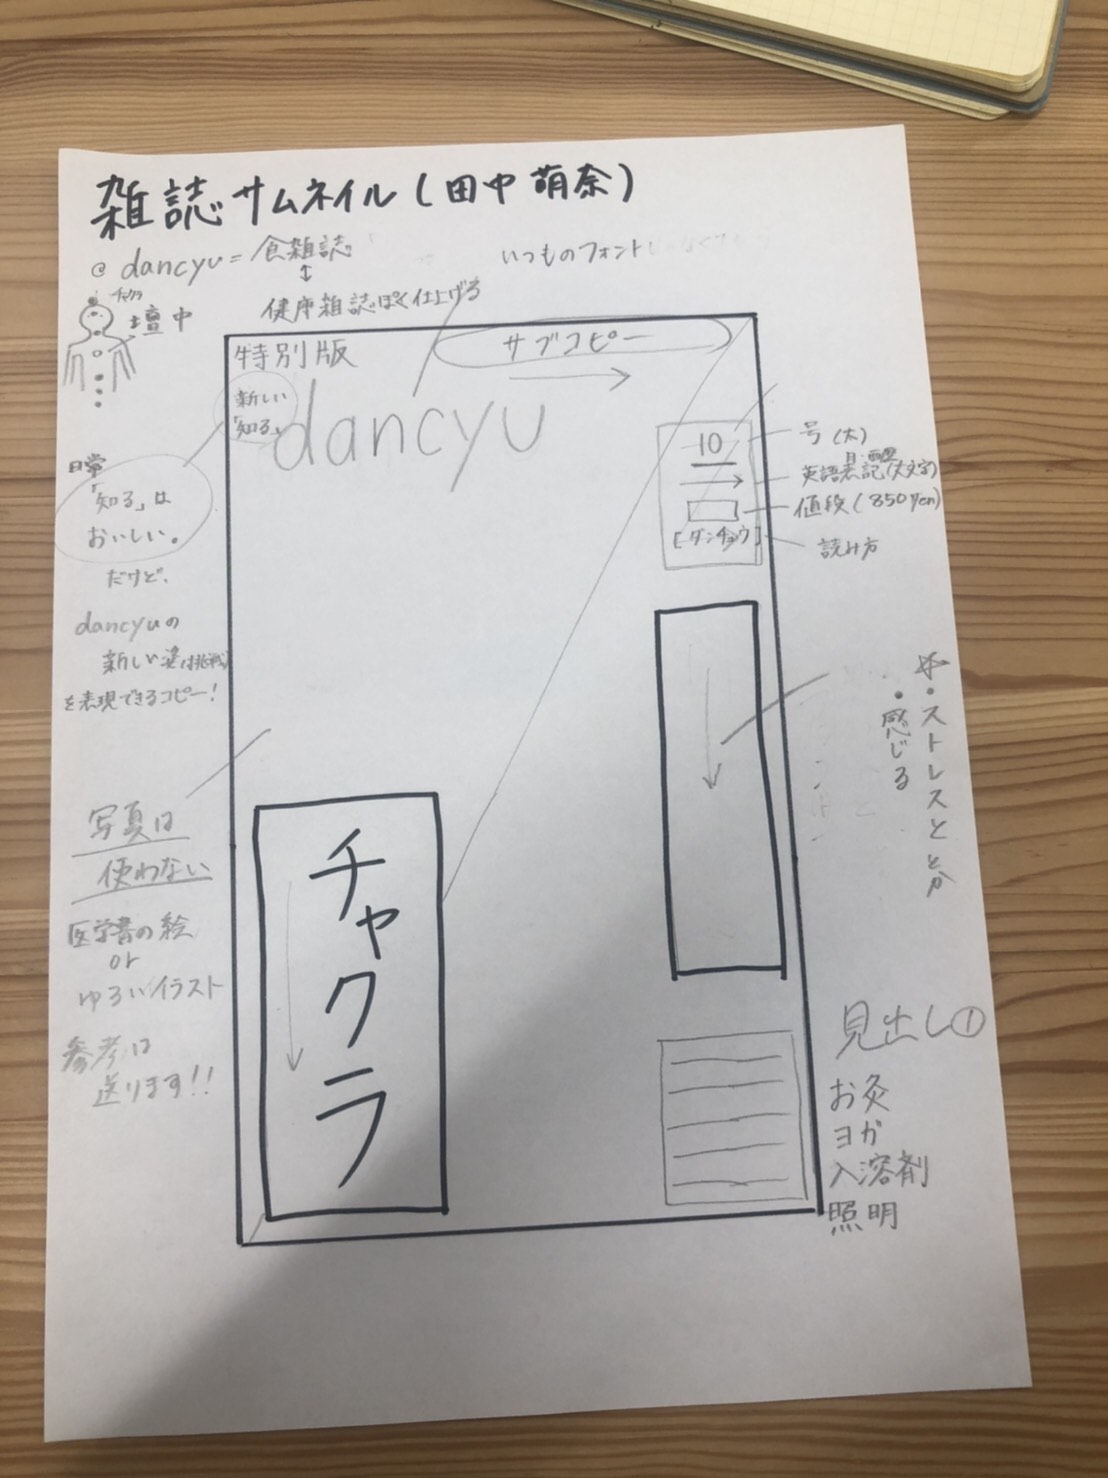 雑誌サムネイル(田中萌奈)
@ dancyu = 食雑誌
↕
健康雑誌ぽく仕上げる
いつものフォント
チャクラ
壇中
特別版
サブコピー
新しい
「知る」
dancyu
10
[ダンチョウ]
号(大)
英語表記(大文字)
値段(850yen)
読み方
日常
「知る」は
おいしい。
だけど、
dancyuの
新しい姿(挑戦)
を表現できるコピー!
・ストレスとか
・感じる
写真は
使わない
医学書の絵
or
ゆるいイラスト
参考は
送ります!!
チャクラ
見出し①
お灸
ヨガ
入溶剤
照明